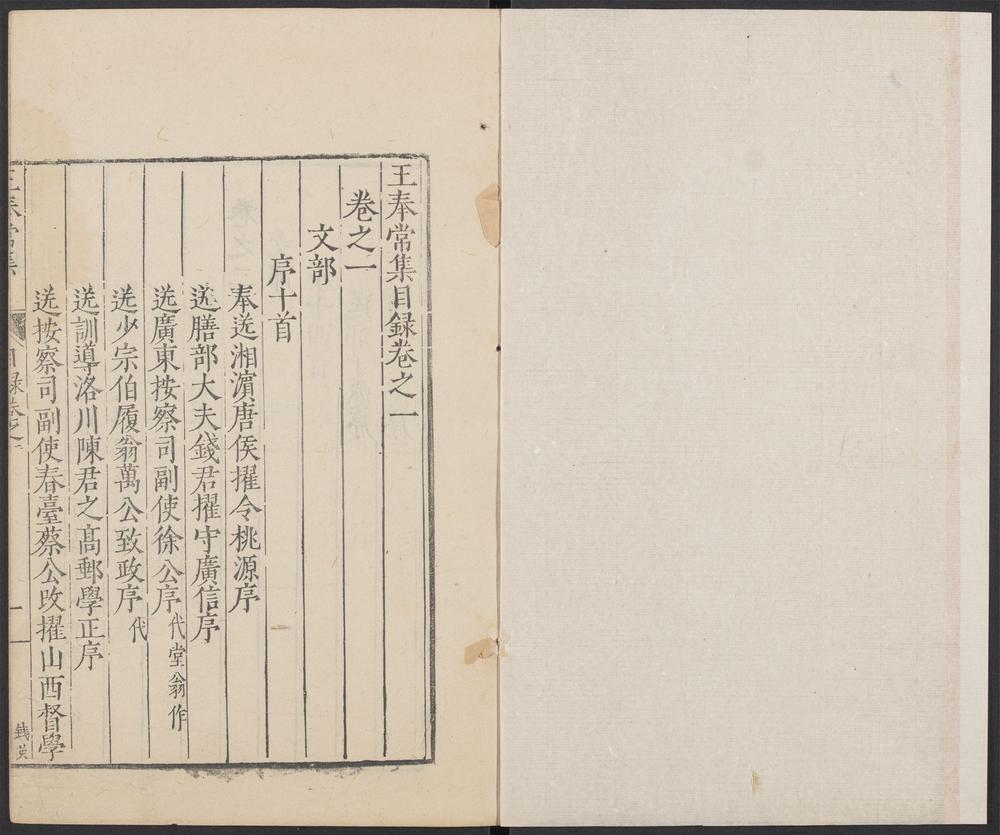 王奉常集目録卷之一
卷之一
文部
序十首
奉送湘濵唐侯擢令桃源序
送膳部大夫錢君擢守廣信序
送廣東按察司副使徐公序代堂翁作
送少宗伯履翁萬公致政序代
送訓導洛川陳君之髙郵學正序
送按察司副使春臺蔡公改擢山西督學
王奉常集
目録卷之一
一